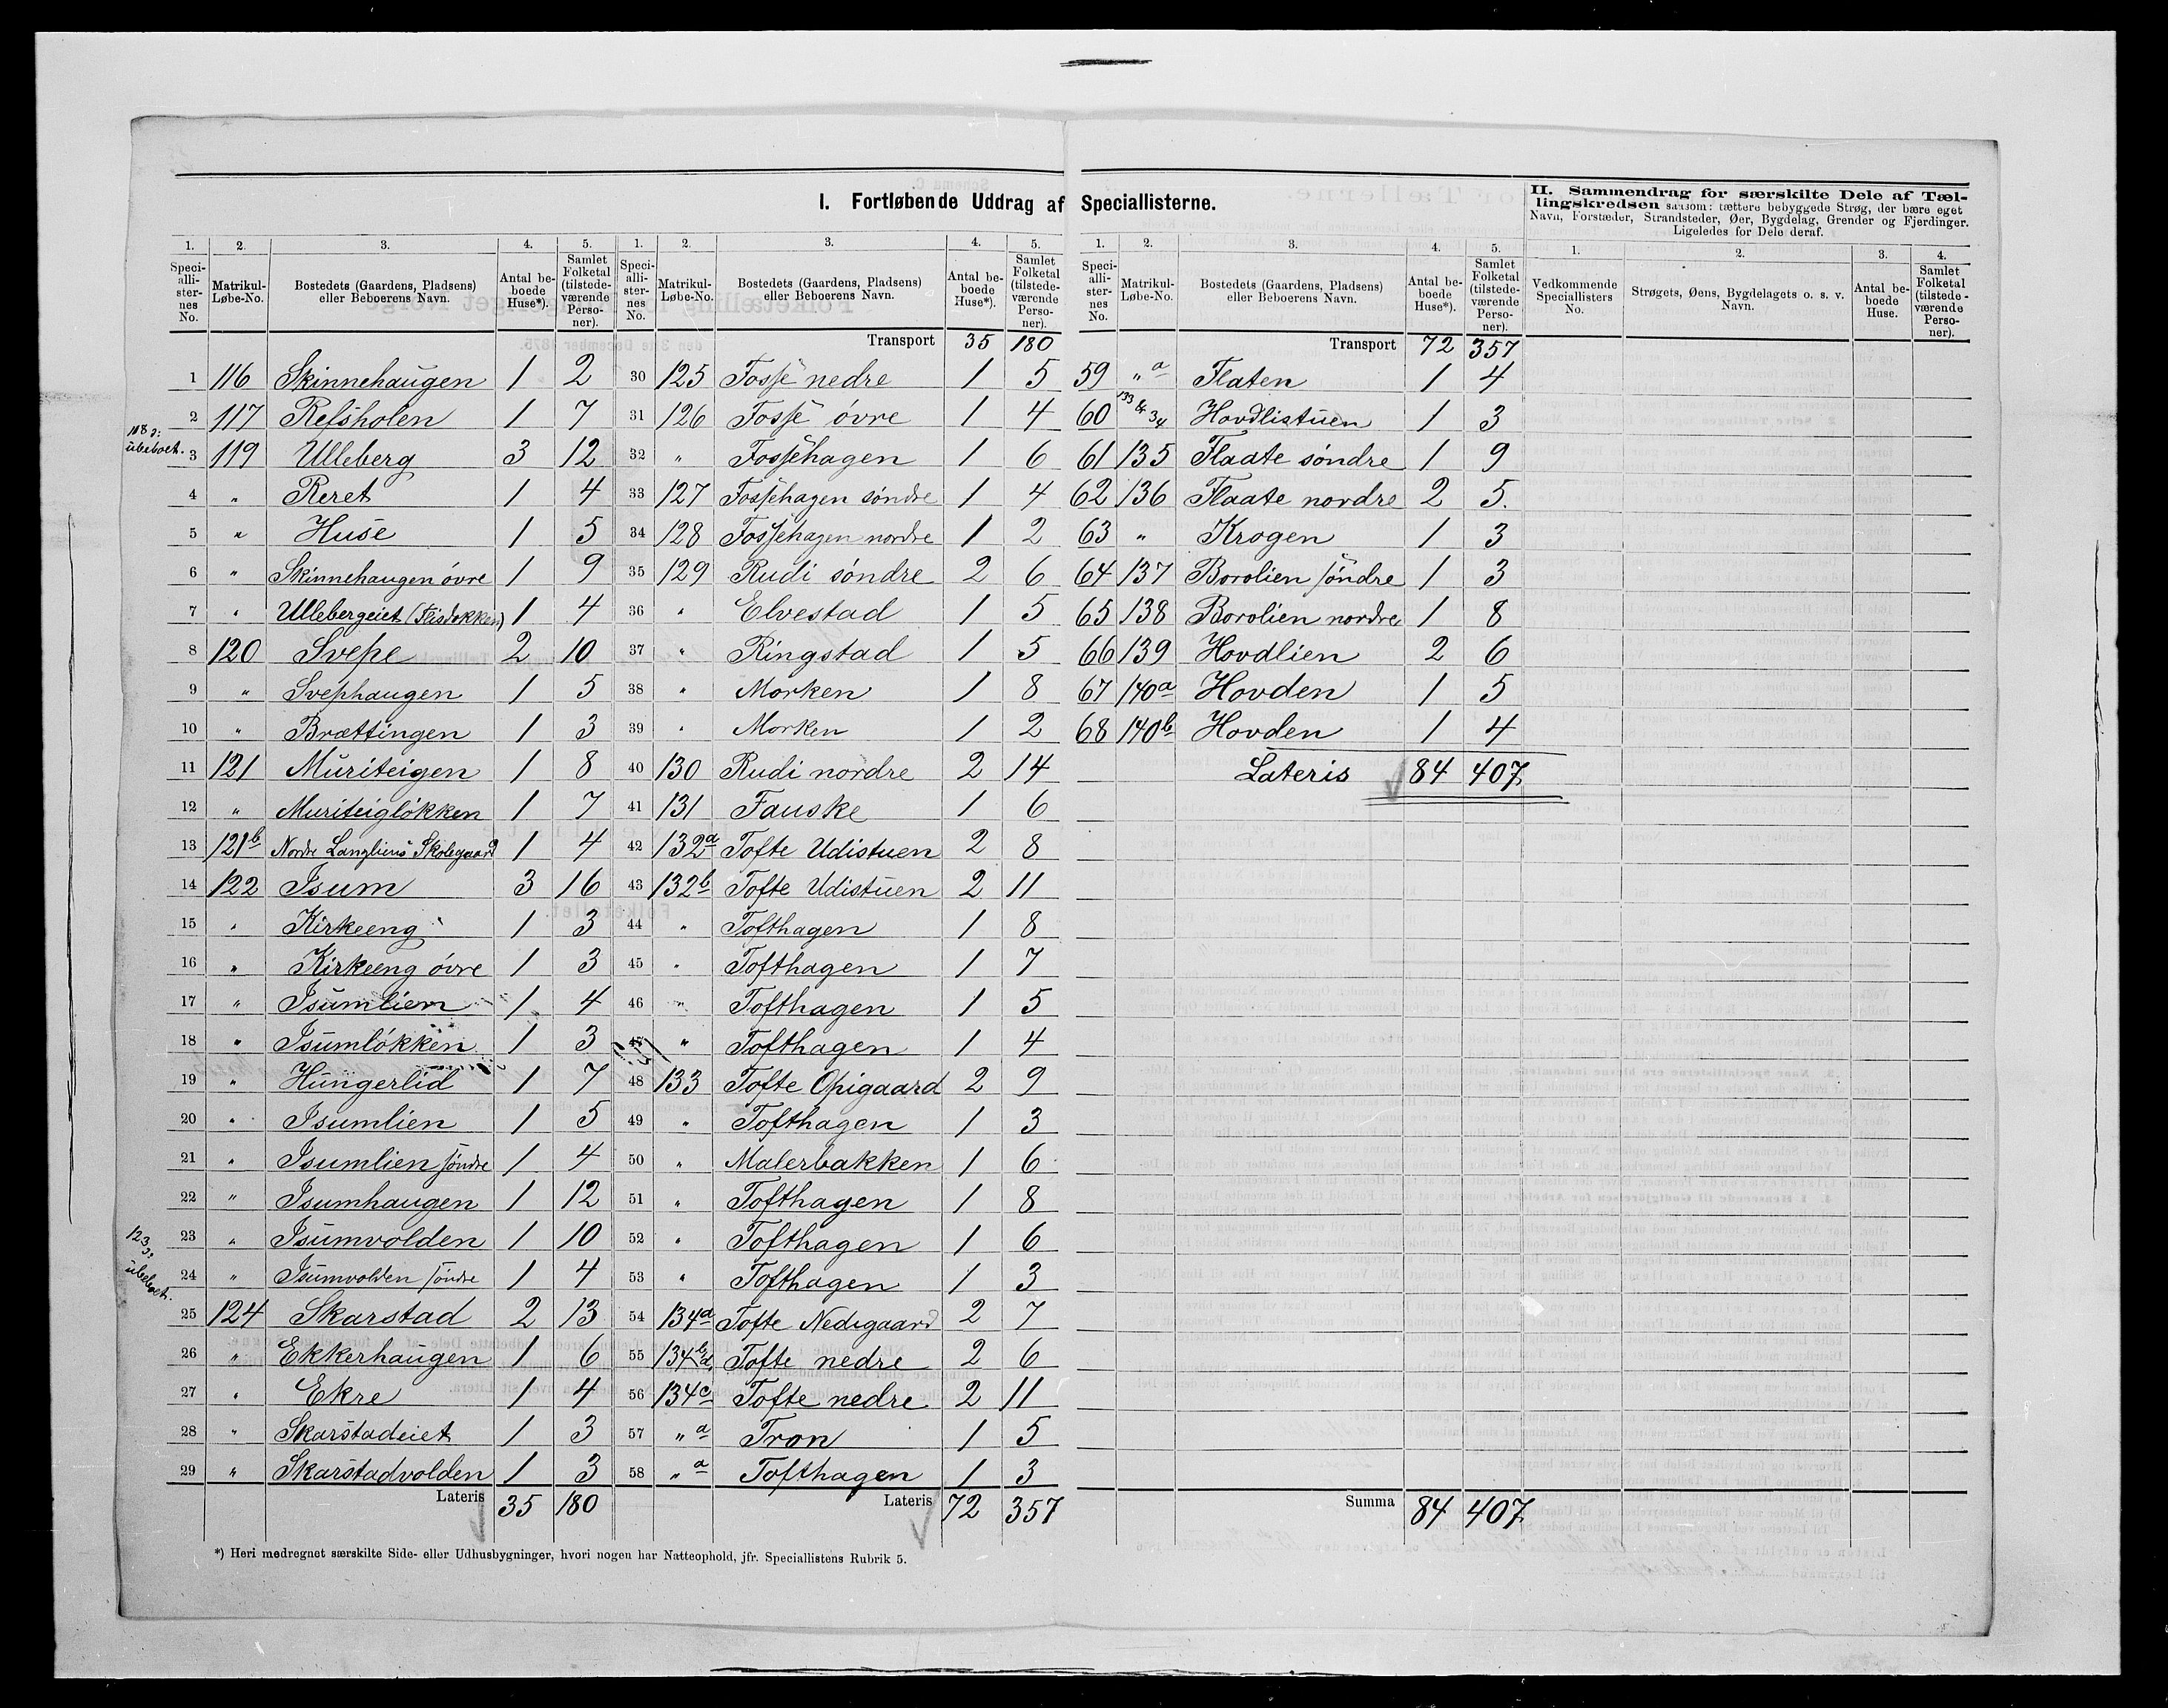 I. Fortløbende Uddrag af Speciallisterne.
II. Sammendrag for særskilte Dele af Tæl-
lingskredsen saasom: tættere bebyggede Strøg, der bære eget
Navn, Forstæder, Strandsteder, Øer, Bygdelag, Grender og Fjerdinger.
Ligeledes for Dele deraf.
1. 2. 3. 4. 5.
Speci-alli-ster-nes No. Matrikul-Løbe-No. Bostedets (Gaardens, Pladsens) eller Beboerens Navn. Antal be-boede Huse*). Samlet Folketal (tilstede-værende Perso-ner).
1 116 Skinnehaugen 1 2
2 117 Refsholen 1 7
118 ubeboet.
3 119 Ulleberg 3 12
4 " Reret 1 4
5 " Huse 1 5
6 " Skinnehaugen øvre 1 9
7 " Ullebergeiet (Flisdokken) 1 4
8 120 Svepe 2 10
9 " Svephaugen 1 5
10 " Brættingen 1 3
11 121 Muriteigen 1 8
12 " Muriteigløkken 1 7
13 121b Nordre Langliens Skolegaard 1 4
14 122 Isum 3 16
15 " Kirkeeng 1 3
16 " Kirkeeng øvre 1 3
17 " Isumlien 1 4
18 " Isumløkken 1 3
19 " Hungerlid 1 7
20 " Isumlien 1 5
21 " Isumlien søndre 1 4
22 " Isumhaugen 1 12
23 " Isumvolden 1 10
123 ubeboet.
24 " Isumvolden søndre 1 4
25 124 Skarstad 2 13
26 " Ekkerhaugen 1 6
27 " Ekre 1 4
28 " Skarstadeiet 1 3
29 " Skarstadvolden 1 3
Lateris 35 180
1. 2. 3. 4. 5.
Speci-alli-ster-nes No. Matrikul-Løbe-No. Bostedets (Gaardens, Pladsens) eller Beboerens Navn. Antal be-boede Huse*). Samlet Folketal (tilstede-værende Perso-ner).
Transport 35 180
30 125 Fosse nedre 1 5
31 126 Fosse øvre 1 4
32 " Fossehagen 1 6
33 127 Fossehagen søndre 1 4
34 128 Fossehagen nordre 1 2
35 129 Rudi søndre 2 6
36 " Elvestad 1 5
37 " Ringstad 1 5
38 " Morken 1 8
39 " Morken 1 2
40 130 Rudi nordre 2 14
41 131 Fauske 1 6
42 132a Tofte Udistuen 2 8
43 132b Tofte Udistuen 2 11
44 " Tofthagen 1 8
45 " Tofthagen 1 7
46 " Tofthagen 1 5
47 " Tofthagen 1 4
48 133 Tofte Opigaard 2 9
49 " Tofthagen 1 3
50 " Malerbakken 1 6
51 " Tofthagen 1 8
52 " Tofthagen 1 6
53 " Tofthagen 1 3
54 134a Tofte Nedigaard 2 7
55 134b d Tofte nedre 2 6
56 134c Tofte nedre 2 11
57 " a Tron 1 5
58 " a Tofthagen 1 3
Lateris 72 357
1. 2. 3. 4. 5.
Speci-alli-ster-nes No. Matrikul-Løbe-No. Bostedets (Gaardens, Pladsens) eller Beboerens Navn. Antal be-boede Huse*). Samlet Folketal (tilstede-værende Perso-ner).
Transport 72 357
59 " a Flaten 1 4
60 133 & 34 Hovdlistuen 1 3
61 135 Flaate søndre 1 9
62 136 Flaate nordre 2 5.
63 " Krogen 1 3
64 137 Borolien søndre 1 3
65 138 Borolien nordre 1 8
66 139 Hovdlien 2 6
67 140a Hovden 1 5
68 140b Hovden 1 4
Lateris 84 407
Summa 84 407
1. 2. 3. 4.
Vedkommende Speciallisters No. Strøgets, Øens, Bygdelagets o. s. v. Navn. Antal be-boede Huse. Samlet Folketal (tilstede-værende Perso-ner).
*) Heri medregnet særskilte Side- eller Udhusbygninger, hvori nogen har Natteophold, jfr. Speciallistens Rubrik 5.